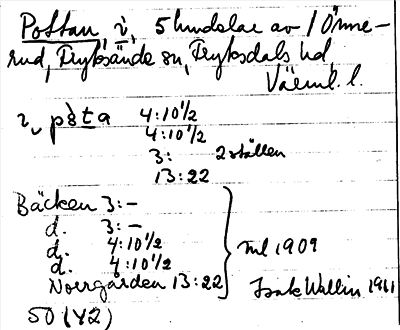 Postan, i, 5 hundelar av 1 Önne-
rud, Fryksände sn, Fryksdals hd,
Värml. l.
i, påsta 4:10½
4:10½
3: 2 ställen
13:22
Bäcken 3:-
d. 3:-
d. 4:10½
d. 4:10½ Jrl 1909
Norrgården 13:22 Isak Wallin 1961
50 (42)